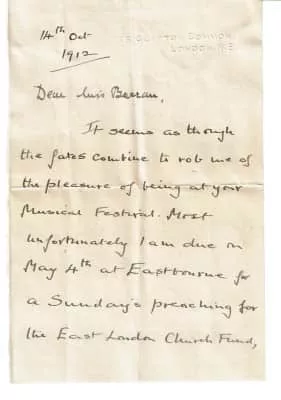 14th Oct
1912
CLAPTON COMMON
LONDON N.E.
Dear Miss
It seems as though
the fates combine to rob me of
the pleasure of being at your
Musical Festival. Most
unfortunately I am due on
May 4th at Eastbourne for
a Sunday's preaching for
the East London Church Fund,